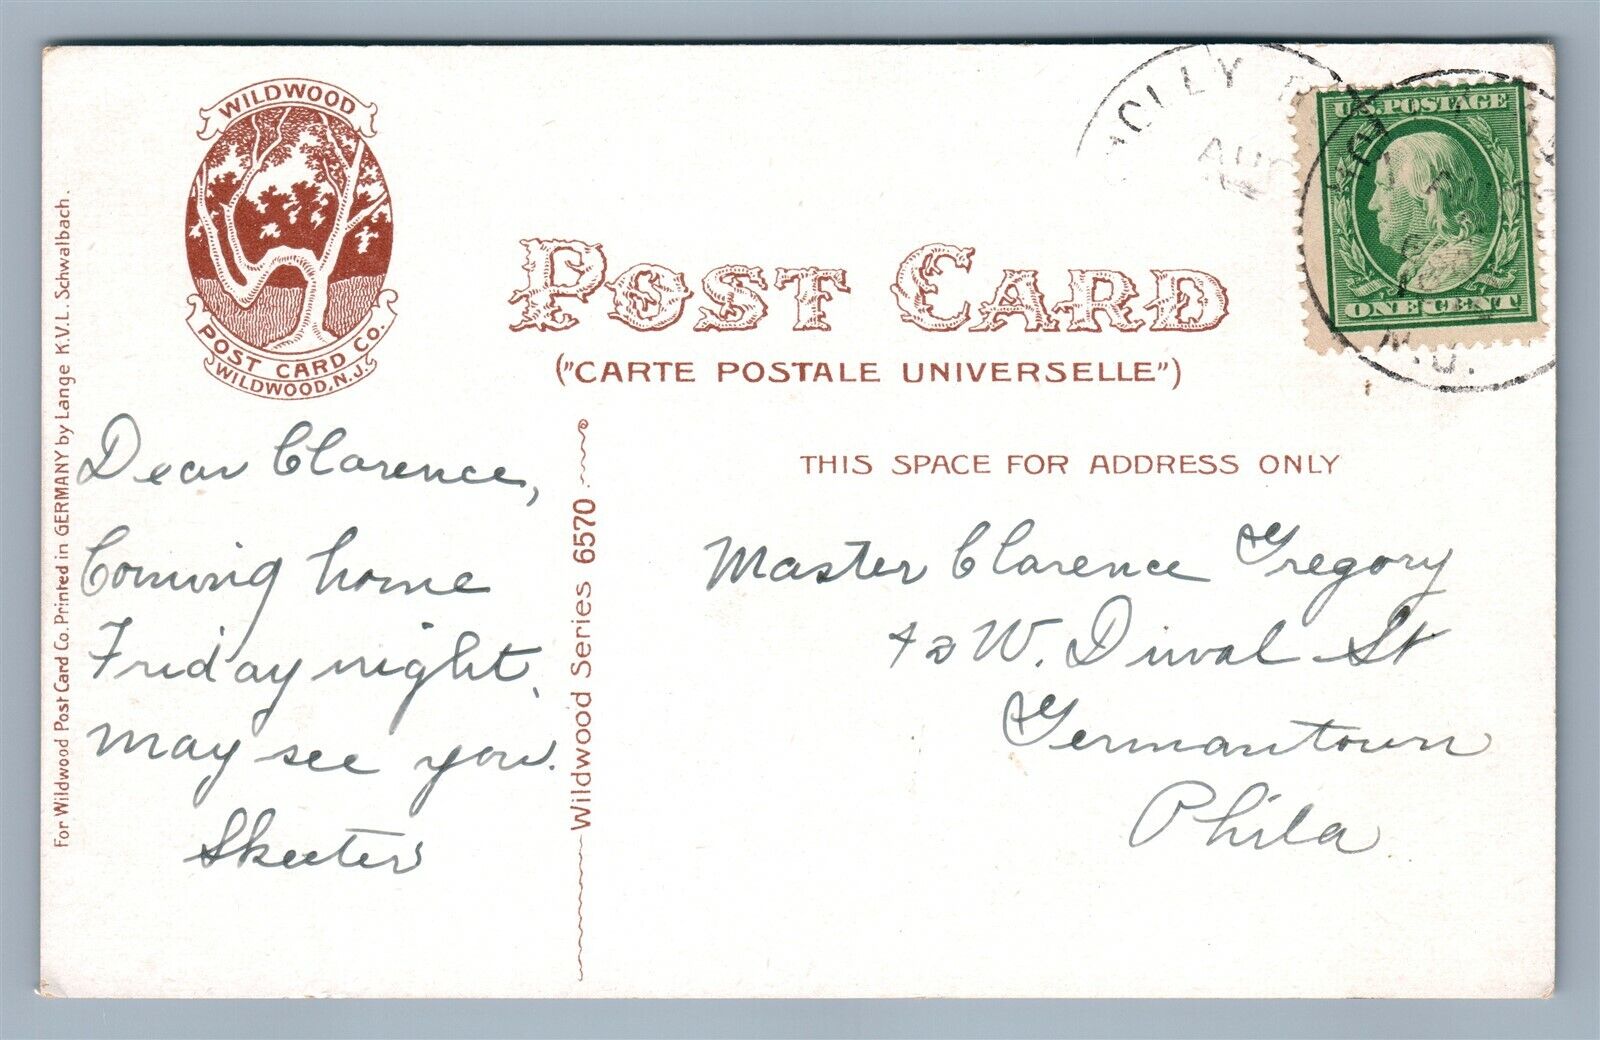 WILDWOOD
POST CARD CO.
WILDWOOD, N.J.
For Wildwood Post Card Co. Printed in GERMANY by Lange K.V.L. Schwalbach.
HOLLY
AUG
U.S. POSTAGE
ONE CENT
N.J.
POST CARD
("CARTE POSTALE UNIVERSELLE")
THIS SPACE FOR ADDRESS ONLY
Wildwood Series 6570
Dear Clarence,
Coming home
Friday night,
may see you.
Skeeter
Master Clarence Gregory
42 W. Duval St
Germantown
Phila